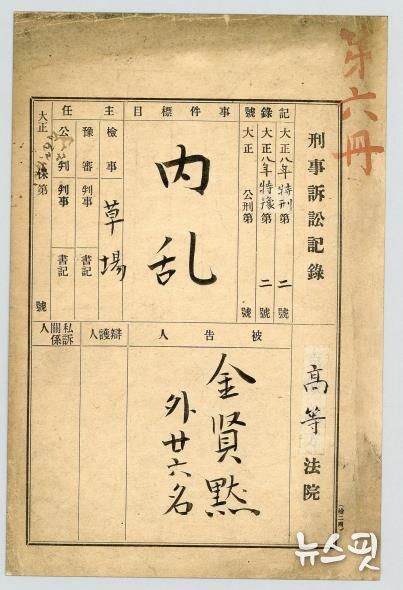 第六冊
刑事訴訟記錄
高等法院
記 大正八年特刑第 二號
錄 大正八年特豫第 二號
號 大正 公刑第 號
事件標目
內乱
主任
檢事 草場
豫審 判事 書記
公判 判事 書記
大正 保第 號
被告人
金賢黙
外廿六名
辯護人
私訴關係人
뉴스핏